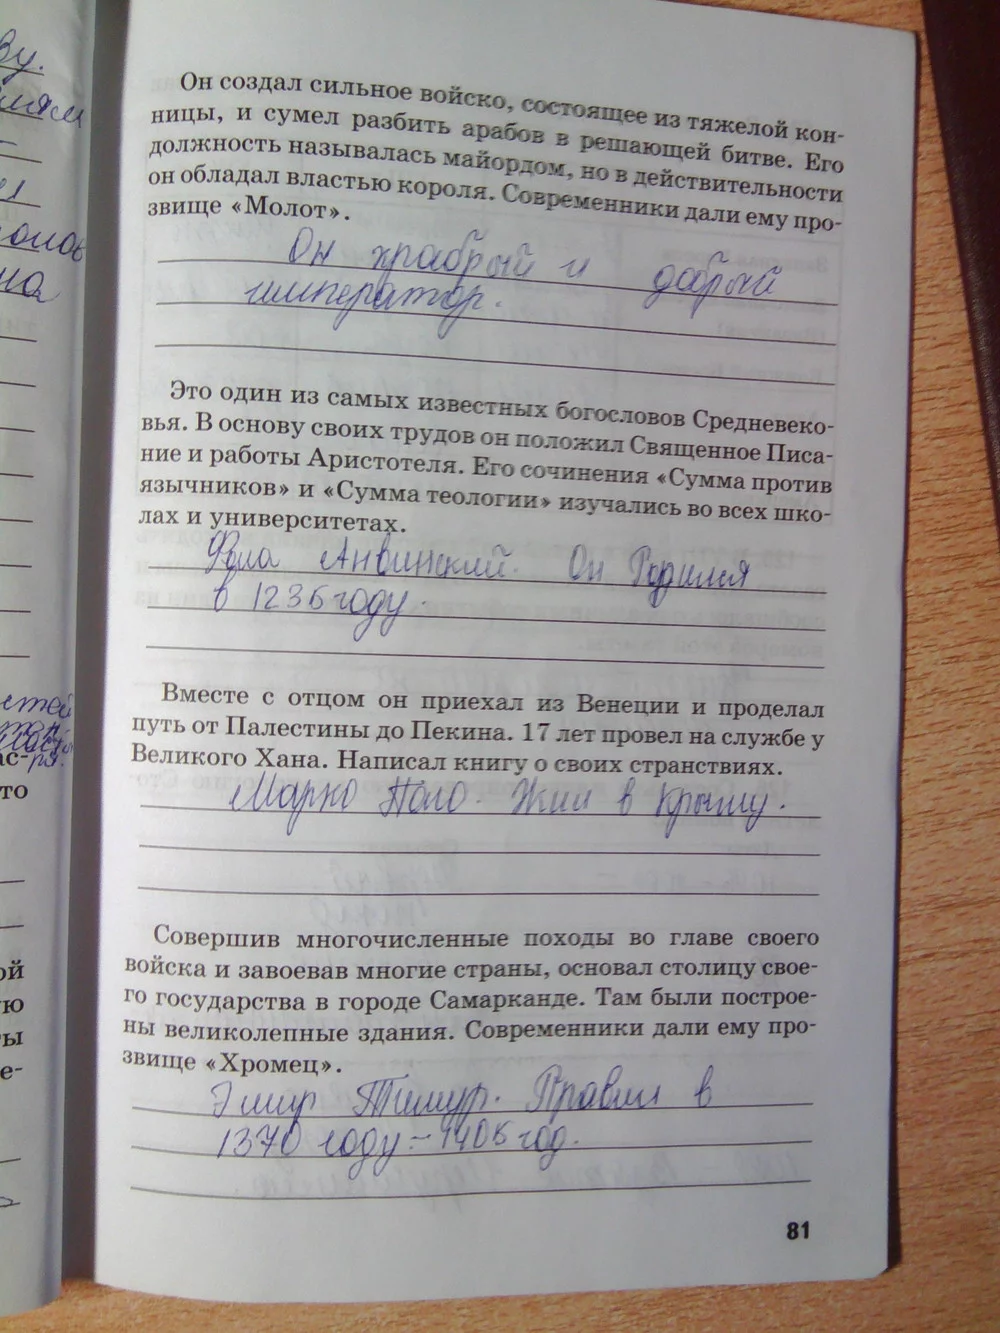 ву.
Он создал сильное войско, состоящее из тяжелой кон-
ницы, и сумел разбить арабов в решающей битве. Его
должность называлась майордом, но в действительности
он обладал властью короля. Современники дали ему про-
звище «Молот».
Он храбрый и добрый
император.
на
Это один из самых известных богословов Средневеко-
вья. В основу своих трудов он положил Священное Писа-
ние и работы Аристотеля. Его сочинения «Сумма против
язычников» и «Сумма теологии» изучались во всех шко-
лах и университетах.
Фома Анвинский. Он Родился
в 1236 году.
Вместе с отцом он приехал из Венеции и проделал
путь от Палестины до Пекина. 17 лет провел на службе у
Великого Хана. Написал книгу о своих странствиях.
Марко Поло. Жил в Крыму.
то
Совершив многочисленные походы во главе своего
войска и завоевав многие страны, основал столицу свое-
го государства в городе Самарканде. Там были построе-
ны великолепные здания. Современники дали ему про-
звище «Хромец».
Эмир Тимур. Правил в
1370 году - 1405 год.
ой
ую
ты
е-
81